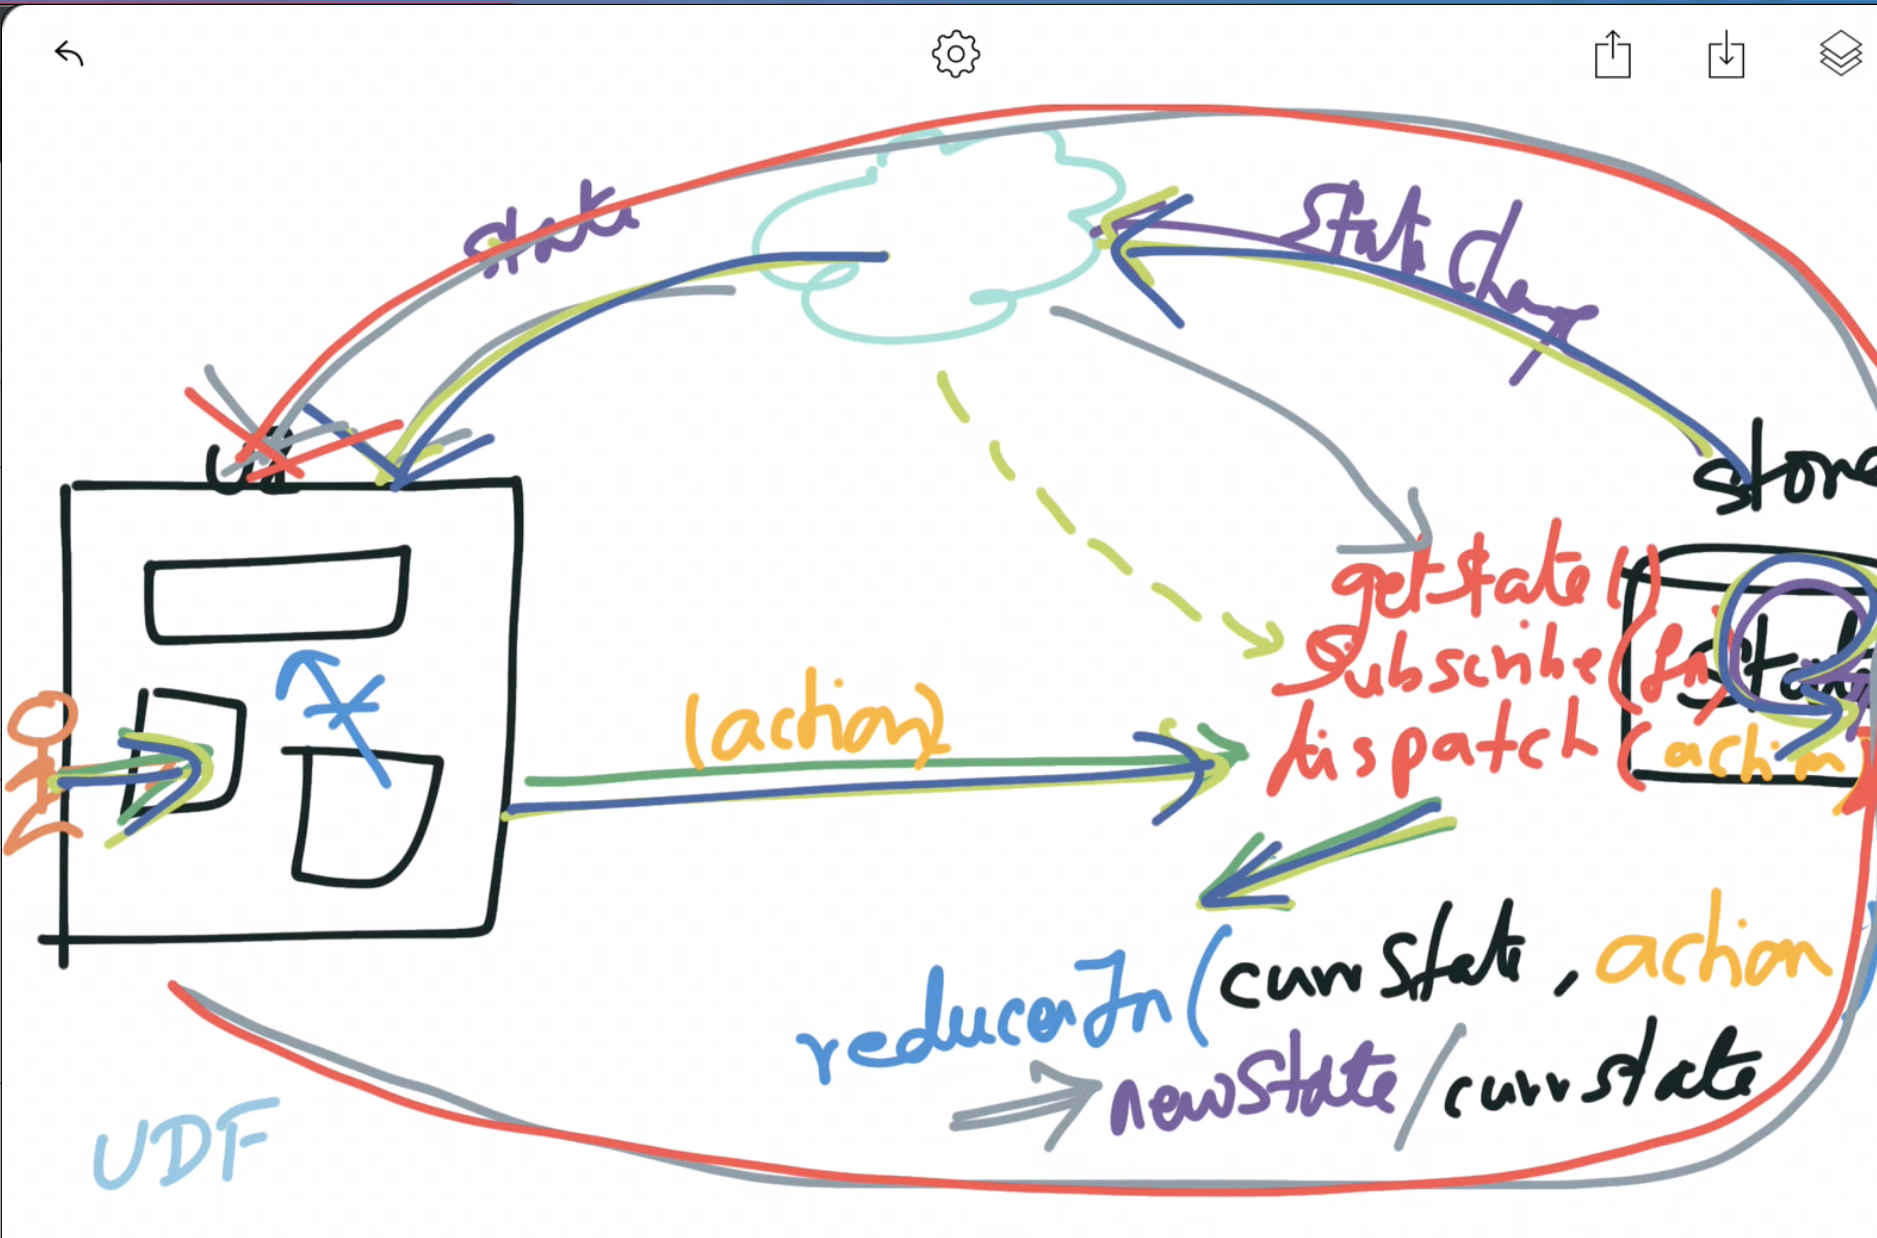 state
State Change
UI
store
getState()
Subscribe(fn)
State
(action)
dispatch(action
reducerFn(currState, action
newState/currstate
UDF